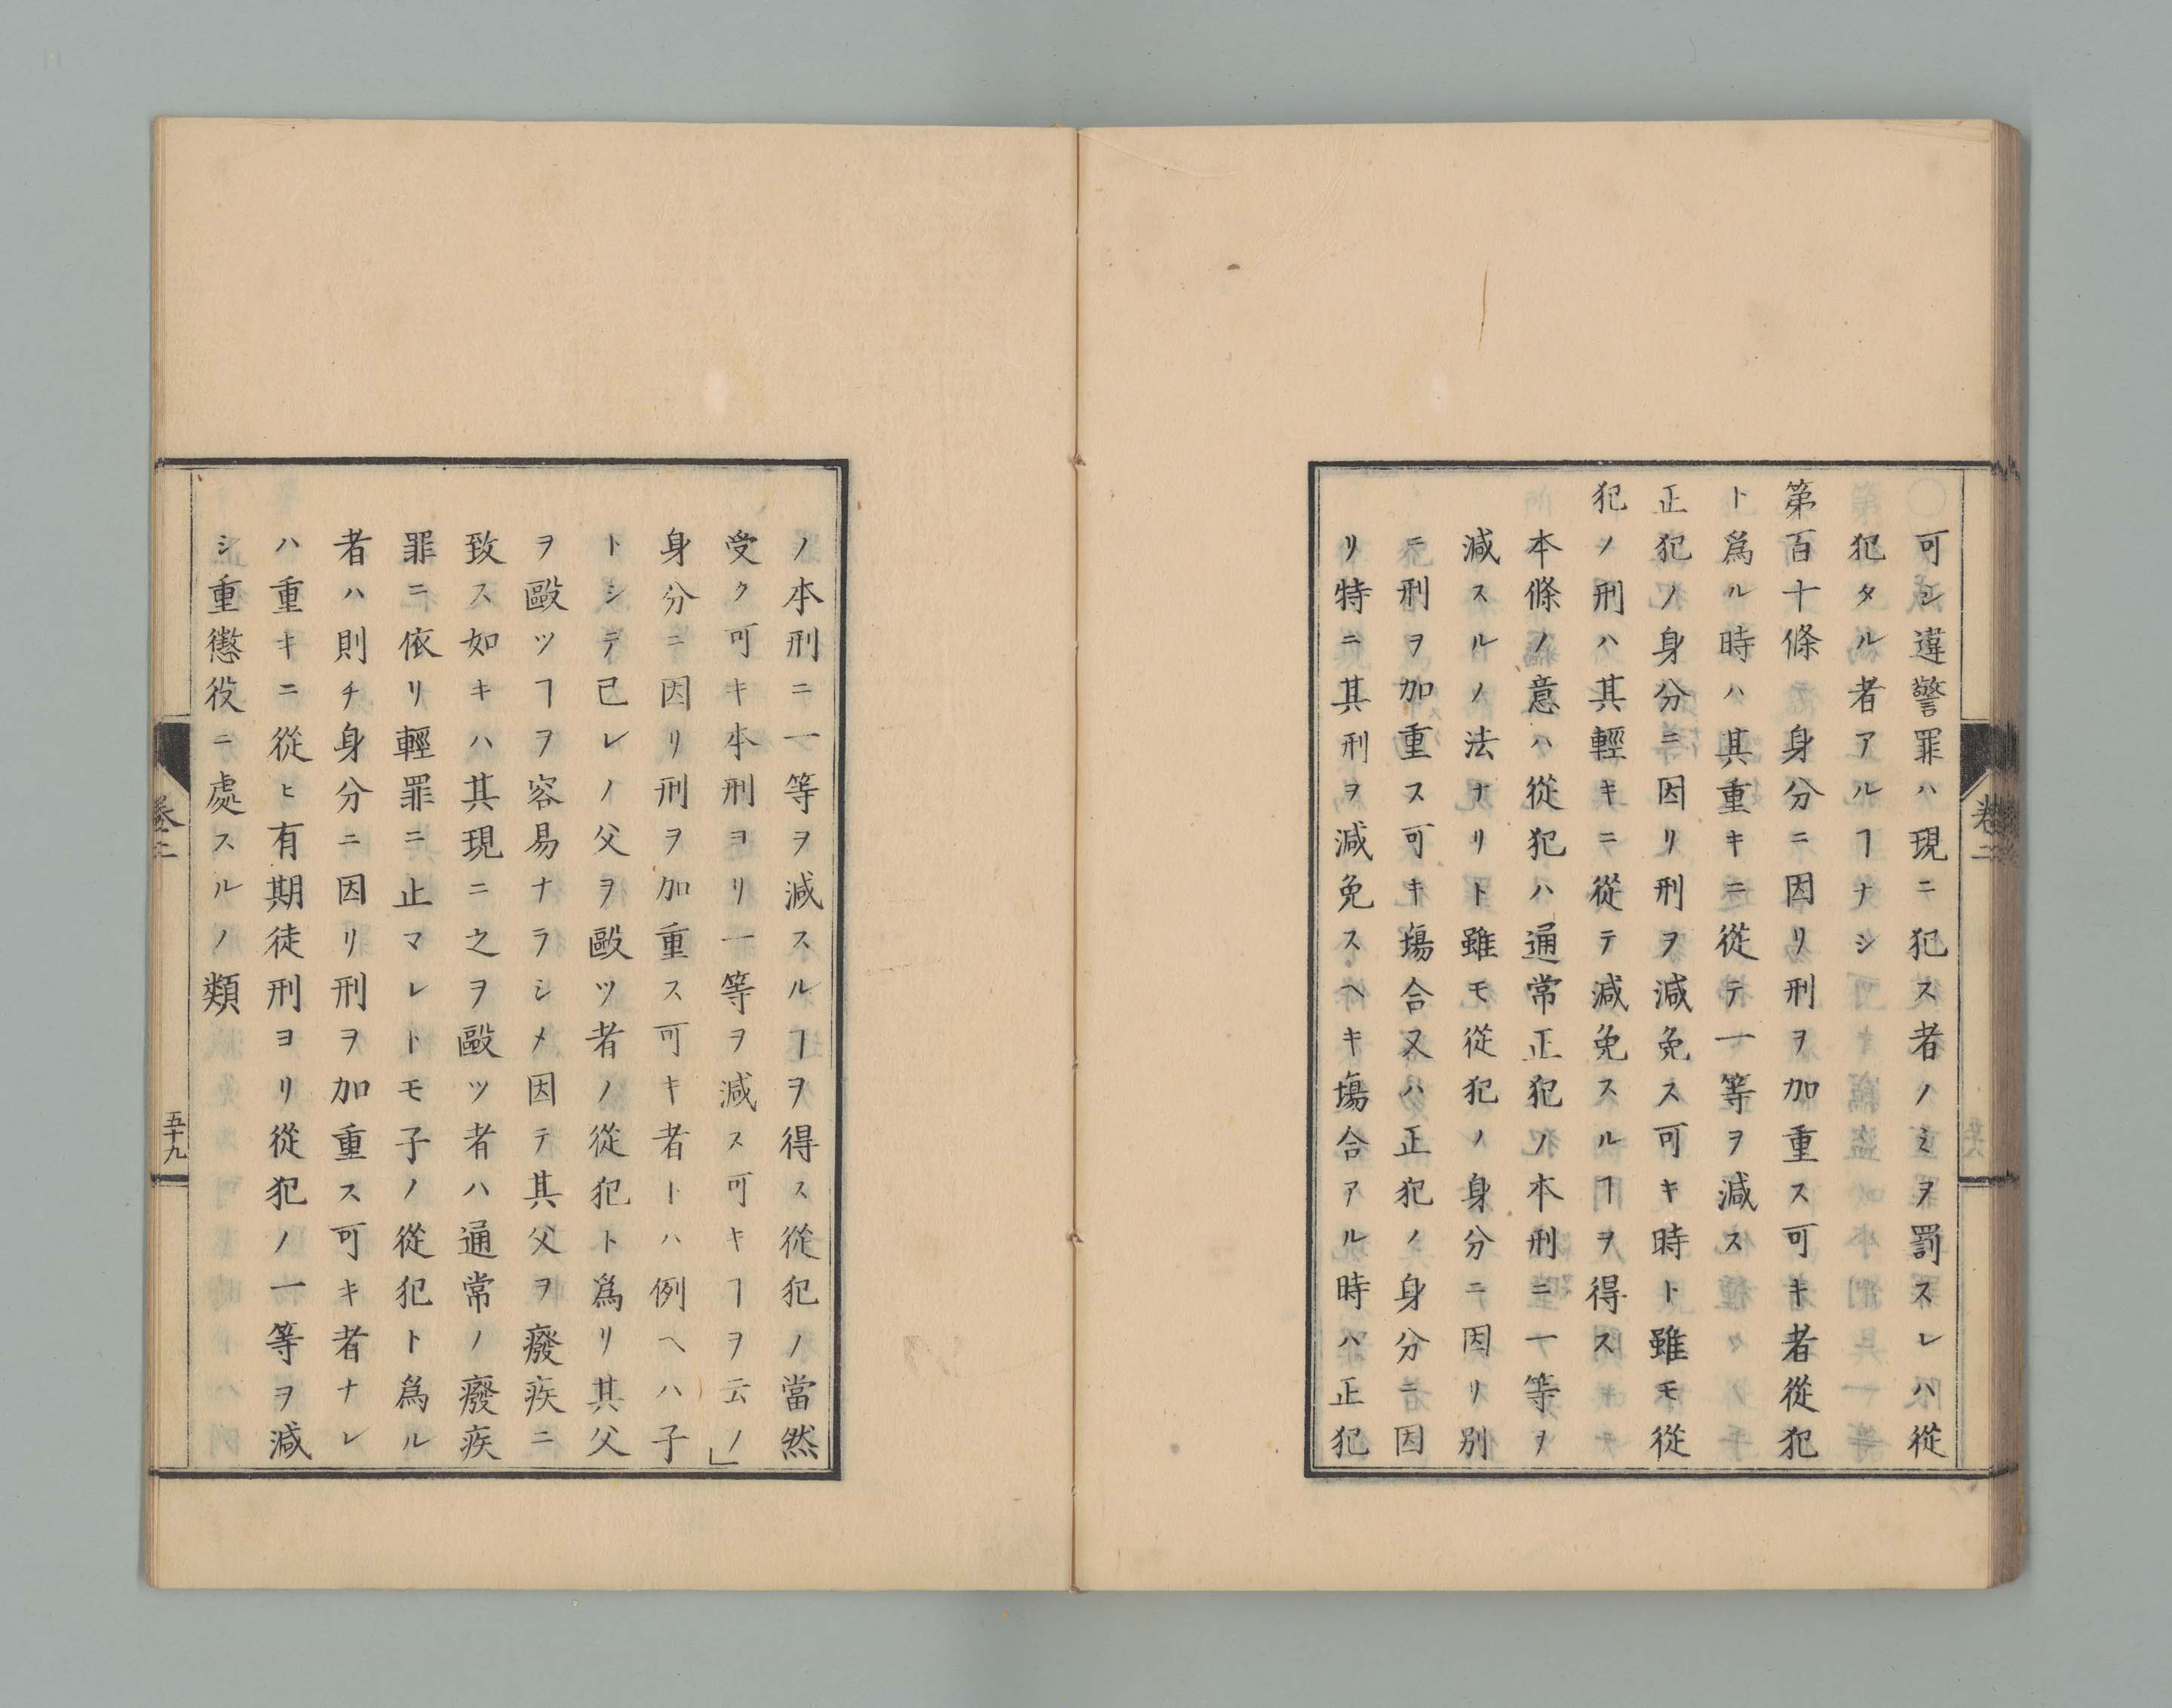 可シ違警罪ハ現ニ犯ス者ノミヲ罰スレハ從
犯タル者アルヿナシ
第百十條身分ニ因リ刑ヲ加重ス可キ者從犯
ト爲ル時ハ其重キニ從テ一等ヲ減ス
正犯ノ身分ニ因リ刑ヲ減免ス可キ時ト雖モ從
犯ノ刑ハ其輕キニ從テ減免スルヿヲ得ス
本條ノ意ハ從犯ハ通常正犯ノ本刑ニ一等ヲ
減スルノ法ナリト雖モ從犯ノ身分ニ因リ別
ニ刑ヲ加重ス可キ塲合又ハ正犯ノ身分ニ因
リ特ニ其刑ヲ減免スヘキ塲合アル時ハ正犯
卷二
ノ本刑ニ一等ヲ減スルヿヲ得ス從犯ノ當然
受ク可キ本刑ヨリ一等ヲ減ス可キヿヲ云ノ」
身分ニ因リ刑ヲ加重ス可キ者トハ例ヘハ子
トシテ己レノ父ヲ毆ツ者ノ從犯ト爲リ其父
ヲ毆ツヿヲ容易ナラシメ因テ其父ヲ癈疾ニ
致ス如キハ其現ニ之ヲ毆ツ者ハ通常ノ癈疾
罪ニ依リ輕罪ニ止マレトモ子ノ從犯ト爲ル
者ハ則チ身分ニ因リ刑ヲ加重ス可キ者ナレ
ハ重キニ從ヒ有期徒刑ヨリ從犯ノ一等ヲ減
シ重懲役ニ處スルノ類
卷二
五十九